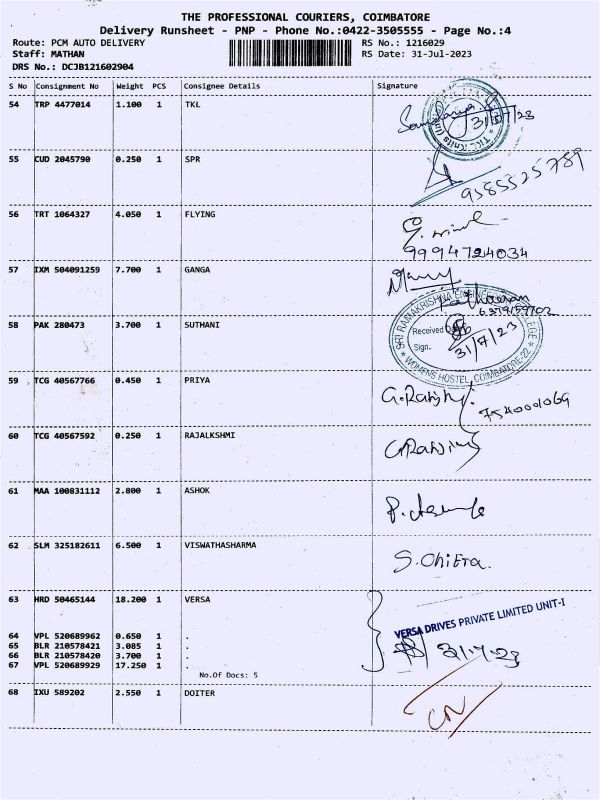 THE PROFESSIONAL COURIERS, COIMBATORE
Delivery Runsheet - PNP - Phone No.:0422-3505555 - Page No.:4
Route: PCM AUTO DELIVERY RS No.: 1216029
Staff: MATHAN RS Date: 31-Jul-2023
DRS No.: DCJB121602904
S No Consignment No Weight PCS Consignee Details Signature
54 TRP 4477014 1.100 1 TKL
31/07/23
55 CUD 2045790 0.250 1 SPR
9585525789
56 TRT 1064327 4.050 1 FLYING
9994724034
57 IXM 504091259 7.700 1 GANGA
58 PAK 280473 3.700 1 SUTHANI
SRI RAMAKRISHNA ENGINEERING COLLEGE
Received
Sign.
31/7/23
* WOMENS HOSTEL, COIMBATORE-22 *
59 TCG 40567766 0.450 1 PRIYA
60 TCG 40567592 0.250 1 RAJALKSHMI
61 MAA 100831112 2.800 1 ASHOK
62 SLM 325182611 6.500 1 VISWATHASHARMA
S. Chitra.
63 HRD 50465144 18.200 1 VERSA
VERSA DRIVES PRIVATE LIMITED UNIT-I
64 VPL 520689962 0.650 1 .
65 BLR 210578421 3.085 1 .
66 BLR 210578420 3.700 1 .
67 VPL 520689929 17.250 1 .
31.7.23
No.Of Docs: 5
68 IXU 589202 2.550 1 DOITER